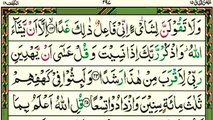 وَلَا تَقُوْلَنَّ لِشَایْءٍ اِنِّیْ فَاعِلٌ ذٰلِكَ غَدًا اِلَّاۤ اَنْ یَّشَآءَ
اللّٰهُ وَاذْكُرْ رَّبَّكَ اِذَا نَسِیْتَ وَقُلْ عَسٰۤی اَنْ یَّهْدِیَنِ
رَبِّیْ لِاَقْرَبَ مِنْ هٰذَا رَشَدًا وَلَبِثُوْا فِیْ كَهْفِهِمْ
ثَلٰثَ مِائَةٍ سِنِیْنَ وَازْدَادُوْا تِسْعًا قُلِ اللّٰهُ اَعْلَمُ بِمَا